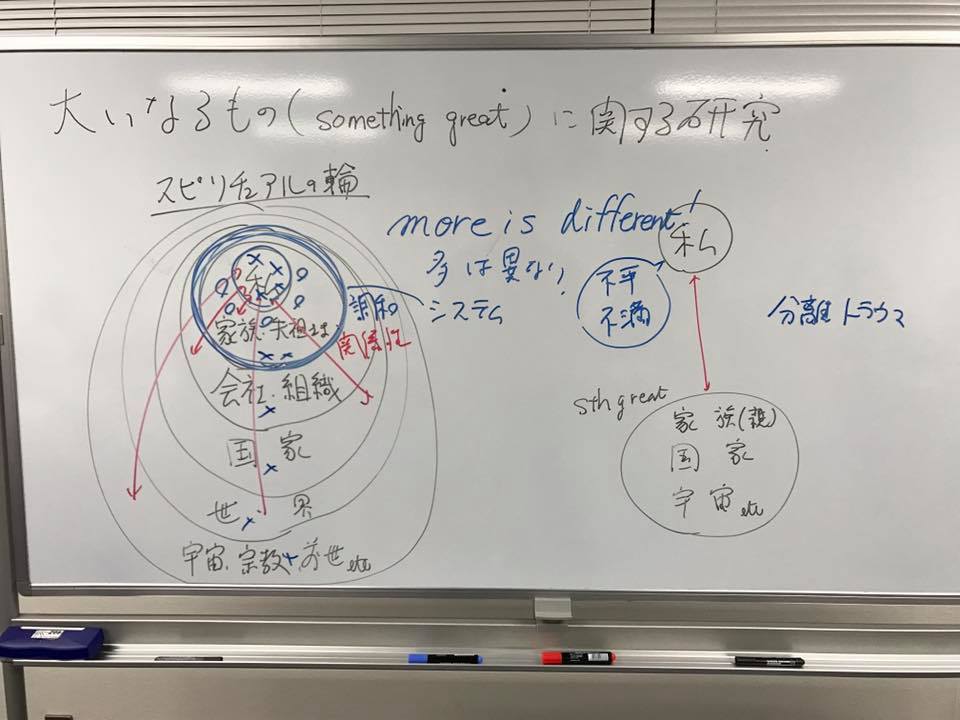 大いなるもの(something great)に関する研究
スピリチュアルの輪
more is different!
多は異なり
システム
私
家族・先祖
調和
関係性
会社・組織
国家
世界
宇宙、宗教、前世etc
私
不平
不満
分離トラウマ
sth great
家族(親)
国家
宇宙etc